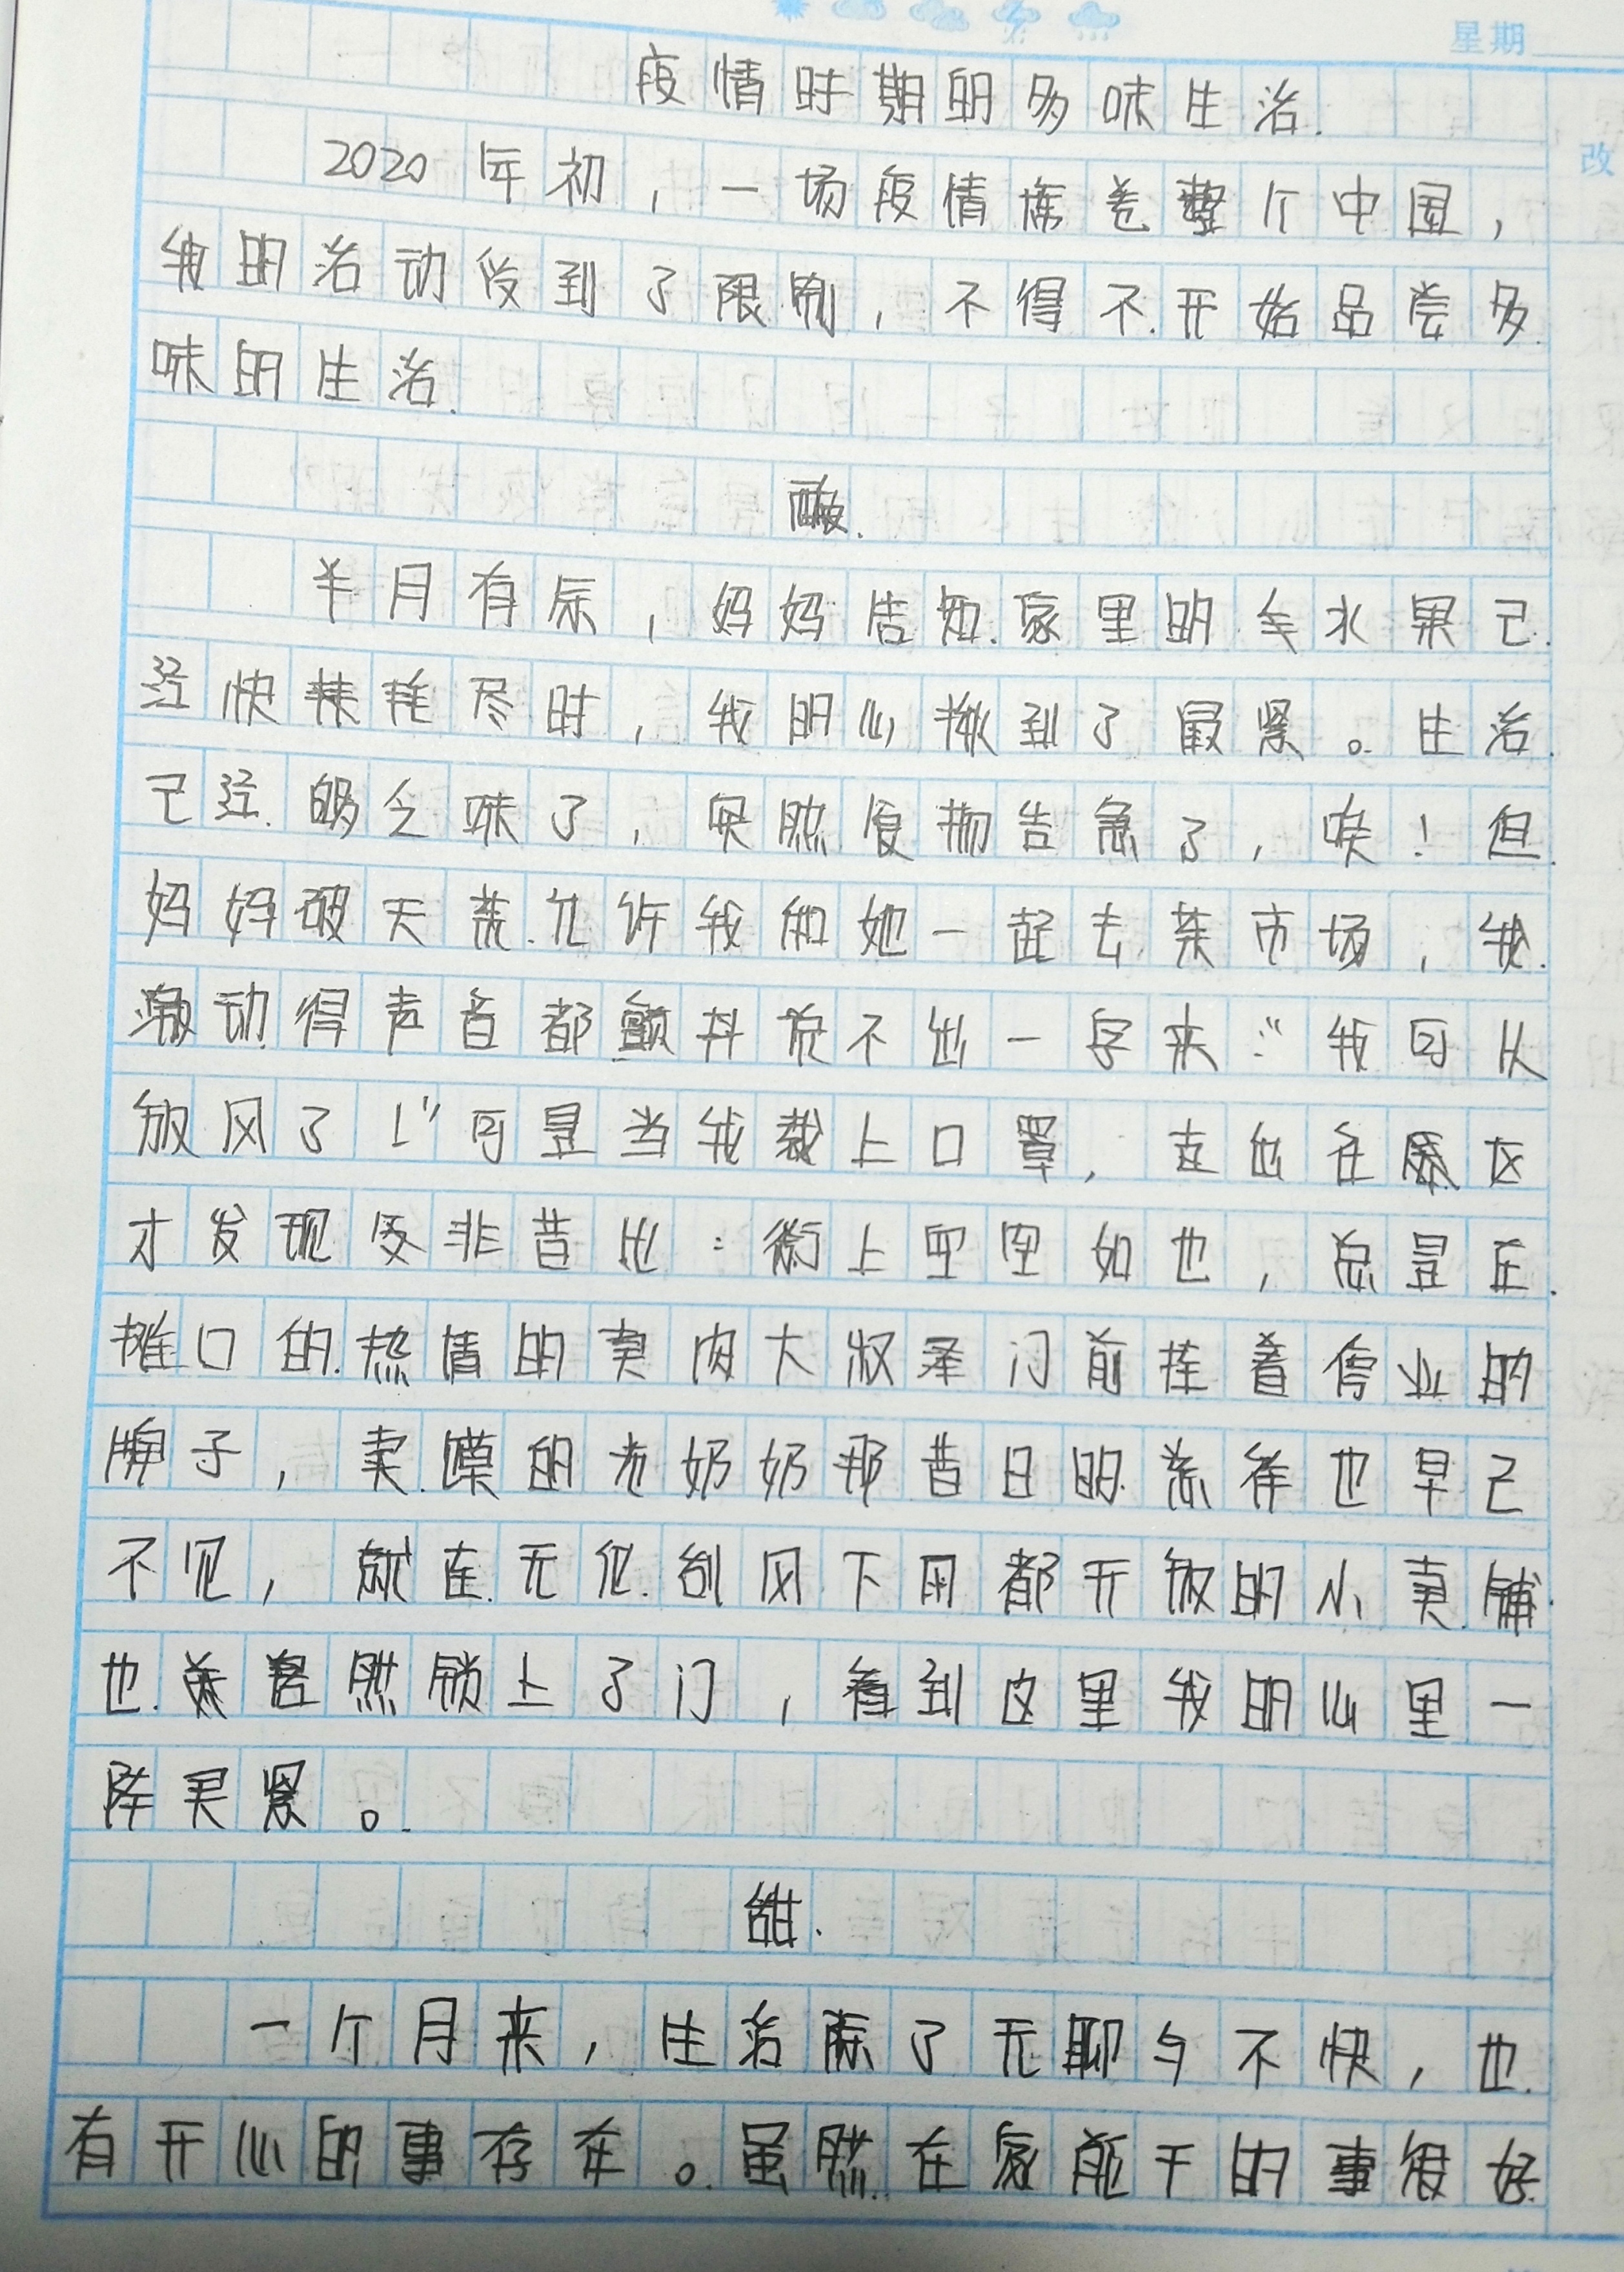 星期
疫情时期的多味生活
改
2020年初，一场疫情席卷整个中国，
我的活动受到了限制，不得不开始品尝多
味的生活.
酸
半月有余，妈妈告知家里的年水果已
经快耗尽时，我的心揪到了最紧。生活
已经够乏味了，突然食物告急了，唉！但
妈妈破天荒允许我和她一起去菜市场，我
激动得声音都颤抖说不出一字来：“我可以
放风了！”可是当我戴上口罩，走出住宅区
才发现今非昔比：街上空空如也，总是在
摊口的热情的卖肉大叔家门前挂着停业的
牌子，卖馍的老奶奶那昔日的慈祥也早已
不见，就连无论刮风下雨都开放的小卖铺
也居然锁上了门，看到这里我的心里一
阵灵紧。
甜
一个月来，生活除了无聊与不快，也
有开心的事存在。虽然在家能干的事很好